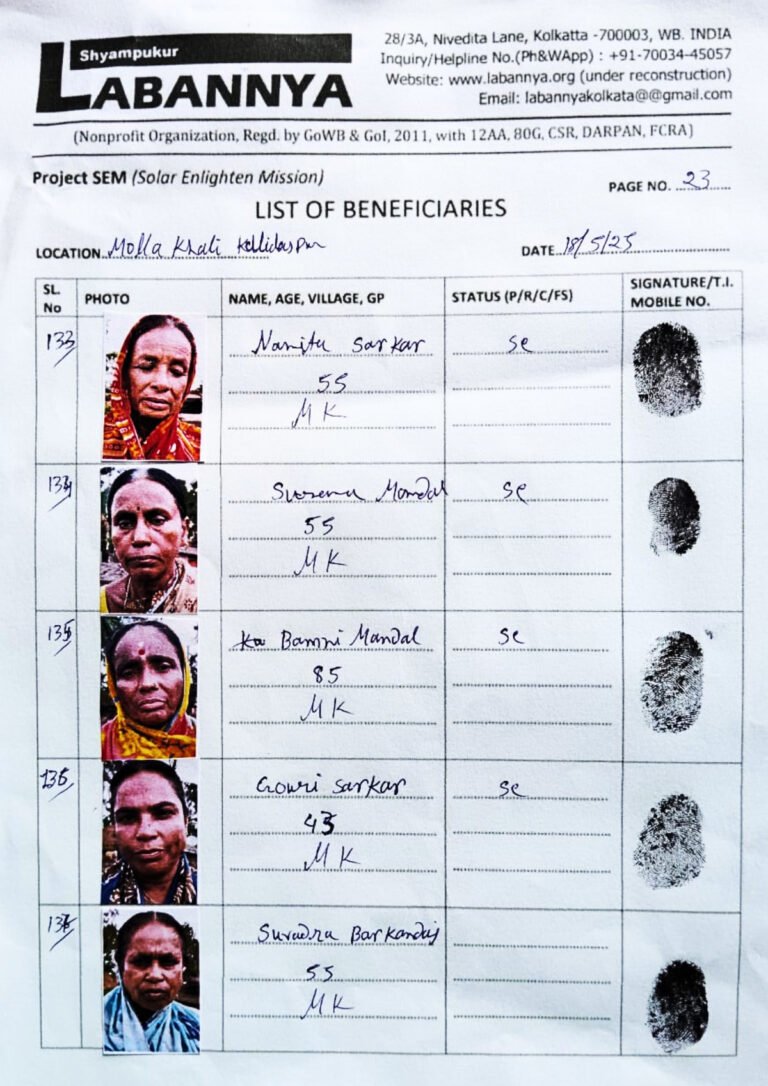 Shyampukur
LABANNYA
28/3A, Nivedita Lane, Kolkatta -700003, WB. INDIA
Inquiry/Helpline No.(Ph&WApp) : +91-70034-45057
Website: www.labannya.org (under reconstruction)
Email: labannyakolkata@@gmail.com
(Nonprofit Organization, Regd. by GoWB & GoI, 2011, with 12AA, 80G, CSR, DARPAN, FCRA)
Project SEM (Solar Enlighten Mission)
PAGE NO. 23
LIST OF BENEFICIARIES
LOCATION Molla Khali Kalidaspur
DATE 18/5/25
SL. No PHOTO NAME, AGE, VILLAGE, GP STATUS (P/R/C/FS) SIGNATURE/T.I. MOBILE NO.
133 Namita Sarkar sc
55
MK
134 Mondal sc
55
MK
135 Ka Bamni Mandal sc
85
MK
136 Gouri Sarkar sc
MK
137 Suvadra Barkandaj
55
MK